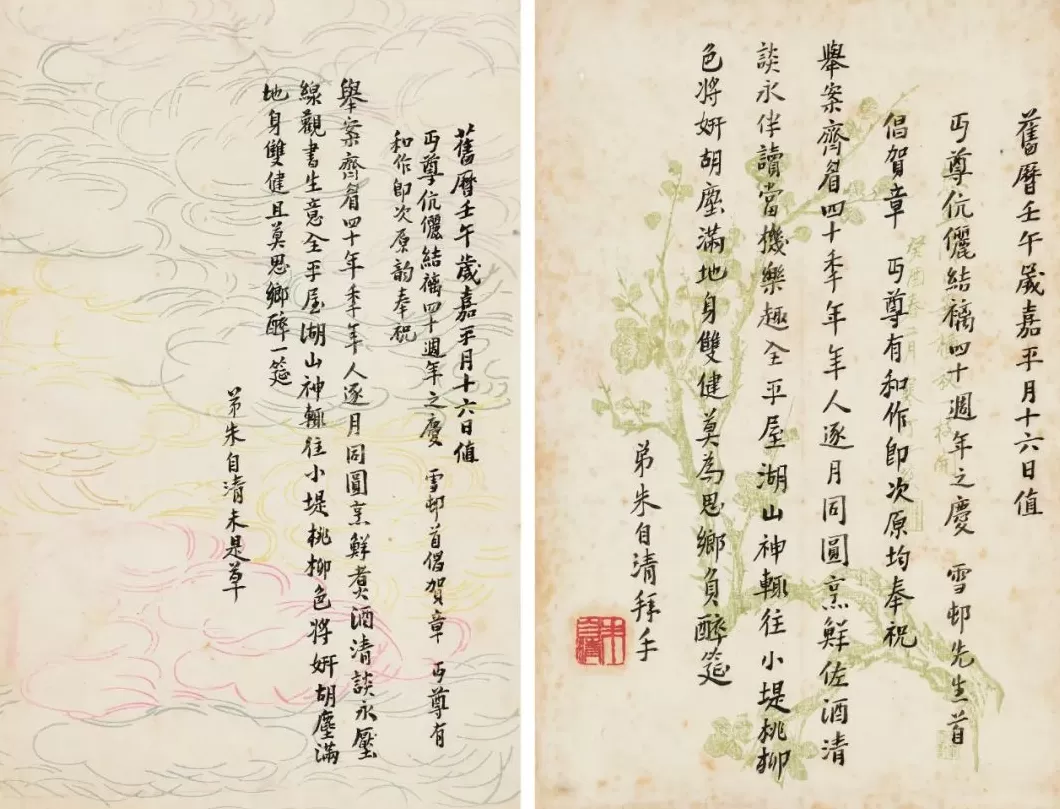 舊曆壬午歲嘉平月十六日值
丏尊伉儷結褵四十週年之慶 雪邨首倡賀章 丏尊有
和作即次原韵奉祝
舉案齊眉四十年季年人逐月同圓烹鮮煮酒清談永壓
線觀書生意全平屋湖山神輒往小堤桃柳色將妍胡塵滿
地身雙健且莫思鄉醉一筵
弟朱自清未是草
舊曆壬午歲嘉平月十六日值
丏尊伉儷結褵四十週年之慶 雪邨先生首
倡賀章 丏尊有和作即次原均奉祝
舉案齊眉四十季年年人逐月同圓烹鮮佐酒清
談永伴讀當機樂趣全平屋湖山神輒往小堤桃柳
色將妍胡塵滿地身雙健莫為思鄉負醉筵
弟朱自清拜手
朱自清